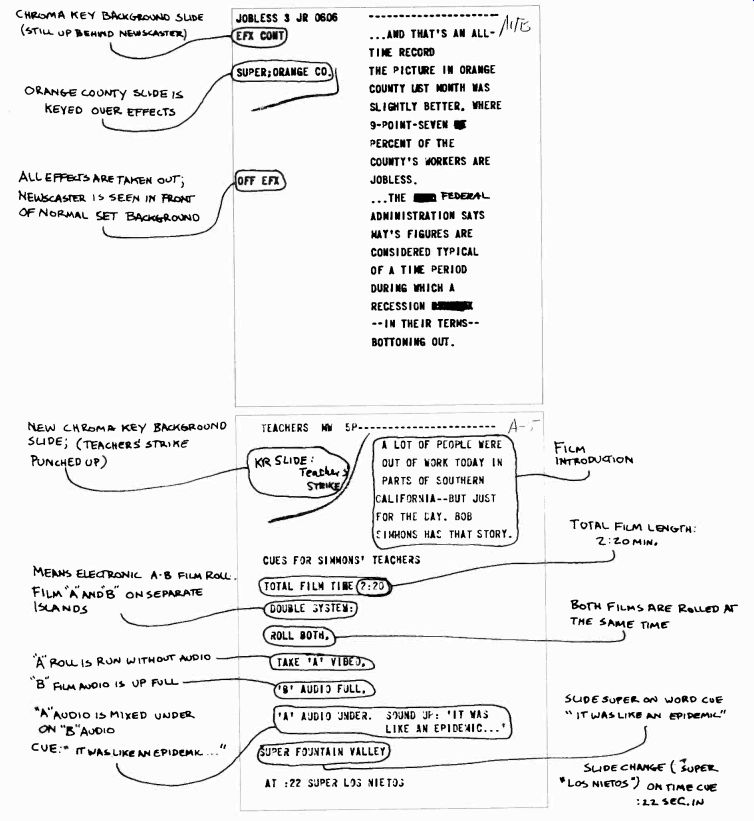 CHROMA KEY BACKGROUND SLIDE
(STILL UP BEHIND NEWSCASTER)
ORANGE COUNTY SLIDE IS
KEYED OVER EFFECTS
ALL EFFECTS ARE TAKEN OUT;
NEWSCASTER IS SEEN IN FRONT
OF NORMAL SET BACKGROUND
JOBLESS 3 JR 0606 -----------------------
EFX CONT
SUPER;ORANGE CO.
OFF EFX
A11/B
...AND THAT'S AN ALL-
TIME RECORD
THE PICTURE IN ORANGE
COUNTY LAST MONTH WAS
SLIGHTLY BETTER, WHERE
9-POINT-SEVEN
PERCENT OF THE
COUNTY'S WORKERS ARE
JOBLESS.
...THE FEDERAL
ADMINISTRATION SAYS
MAY'S FIGURES ARE
CONSIDERED TYPICAL
OF A TIME PERIOD
DURING WHICH A
RECESSION
--IN THEIR TERMS--
BOTTOMING OUT.
NEW CHROMA KEY BACKGROUND
SLIDE; (TEACHERS' STRIKE
PUNCHED UP)
TEACHERS MW 5P-----------------------
A-5
KR SLIDE:
Teachers'
STRIKE
A LOT OF PEOPLE WERE
OUT OF WORK TODAY IN
PARTS OF SOUTHERN
CALIFORNIA--BUT JUST
FOR THE DAY. BOB
SIMMONS HAS THAT STORY.
FILM
INTRODUCTION
CUES FOR SIMMONS' TEACHERS
TOTAL FILM TIME 2:20
DOUBLE SYSTEM:
ROLL BOTH.
TAKE 'A' VIDEO.
'B' AUDIO FULL.
'A' AUDIO UNDER. SOUND UP: 'IT WAS
LIKE AN EPIDEMIC...'
SUPER FOUNTAIN VALLEY
AT :22 SUPER LOS NIETOS
MEANS ELECTRONIC A-B FILM ROLL.
FILM "A" AND "B" ON SEPARATE
ISLANDS
"A" ROLL IS RUN WITHOUT AUDIO
"B" FILM AUDIO IS UP FULL
"A" AUDIO IS MIXED UNDER
ON "B" AUDIO
CUE: "IT WAS LIKE AN EPIDEMIC..."
TOTAL FILM LENGTH:
2:20 MIN.
BOTH FILMS ARE ROLLED AT
THE SAME TIME
SLIDE SUPER ON WORD CUE
"IT WAS LIKE AN EPIDEMIC"
SLIDE CHANGE (SUPER
"LOS NIETOS") ON TIME CUE
:22 SEC. IN